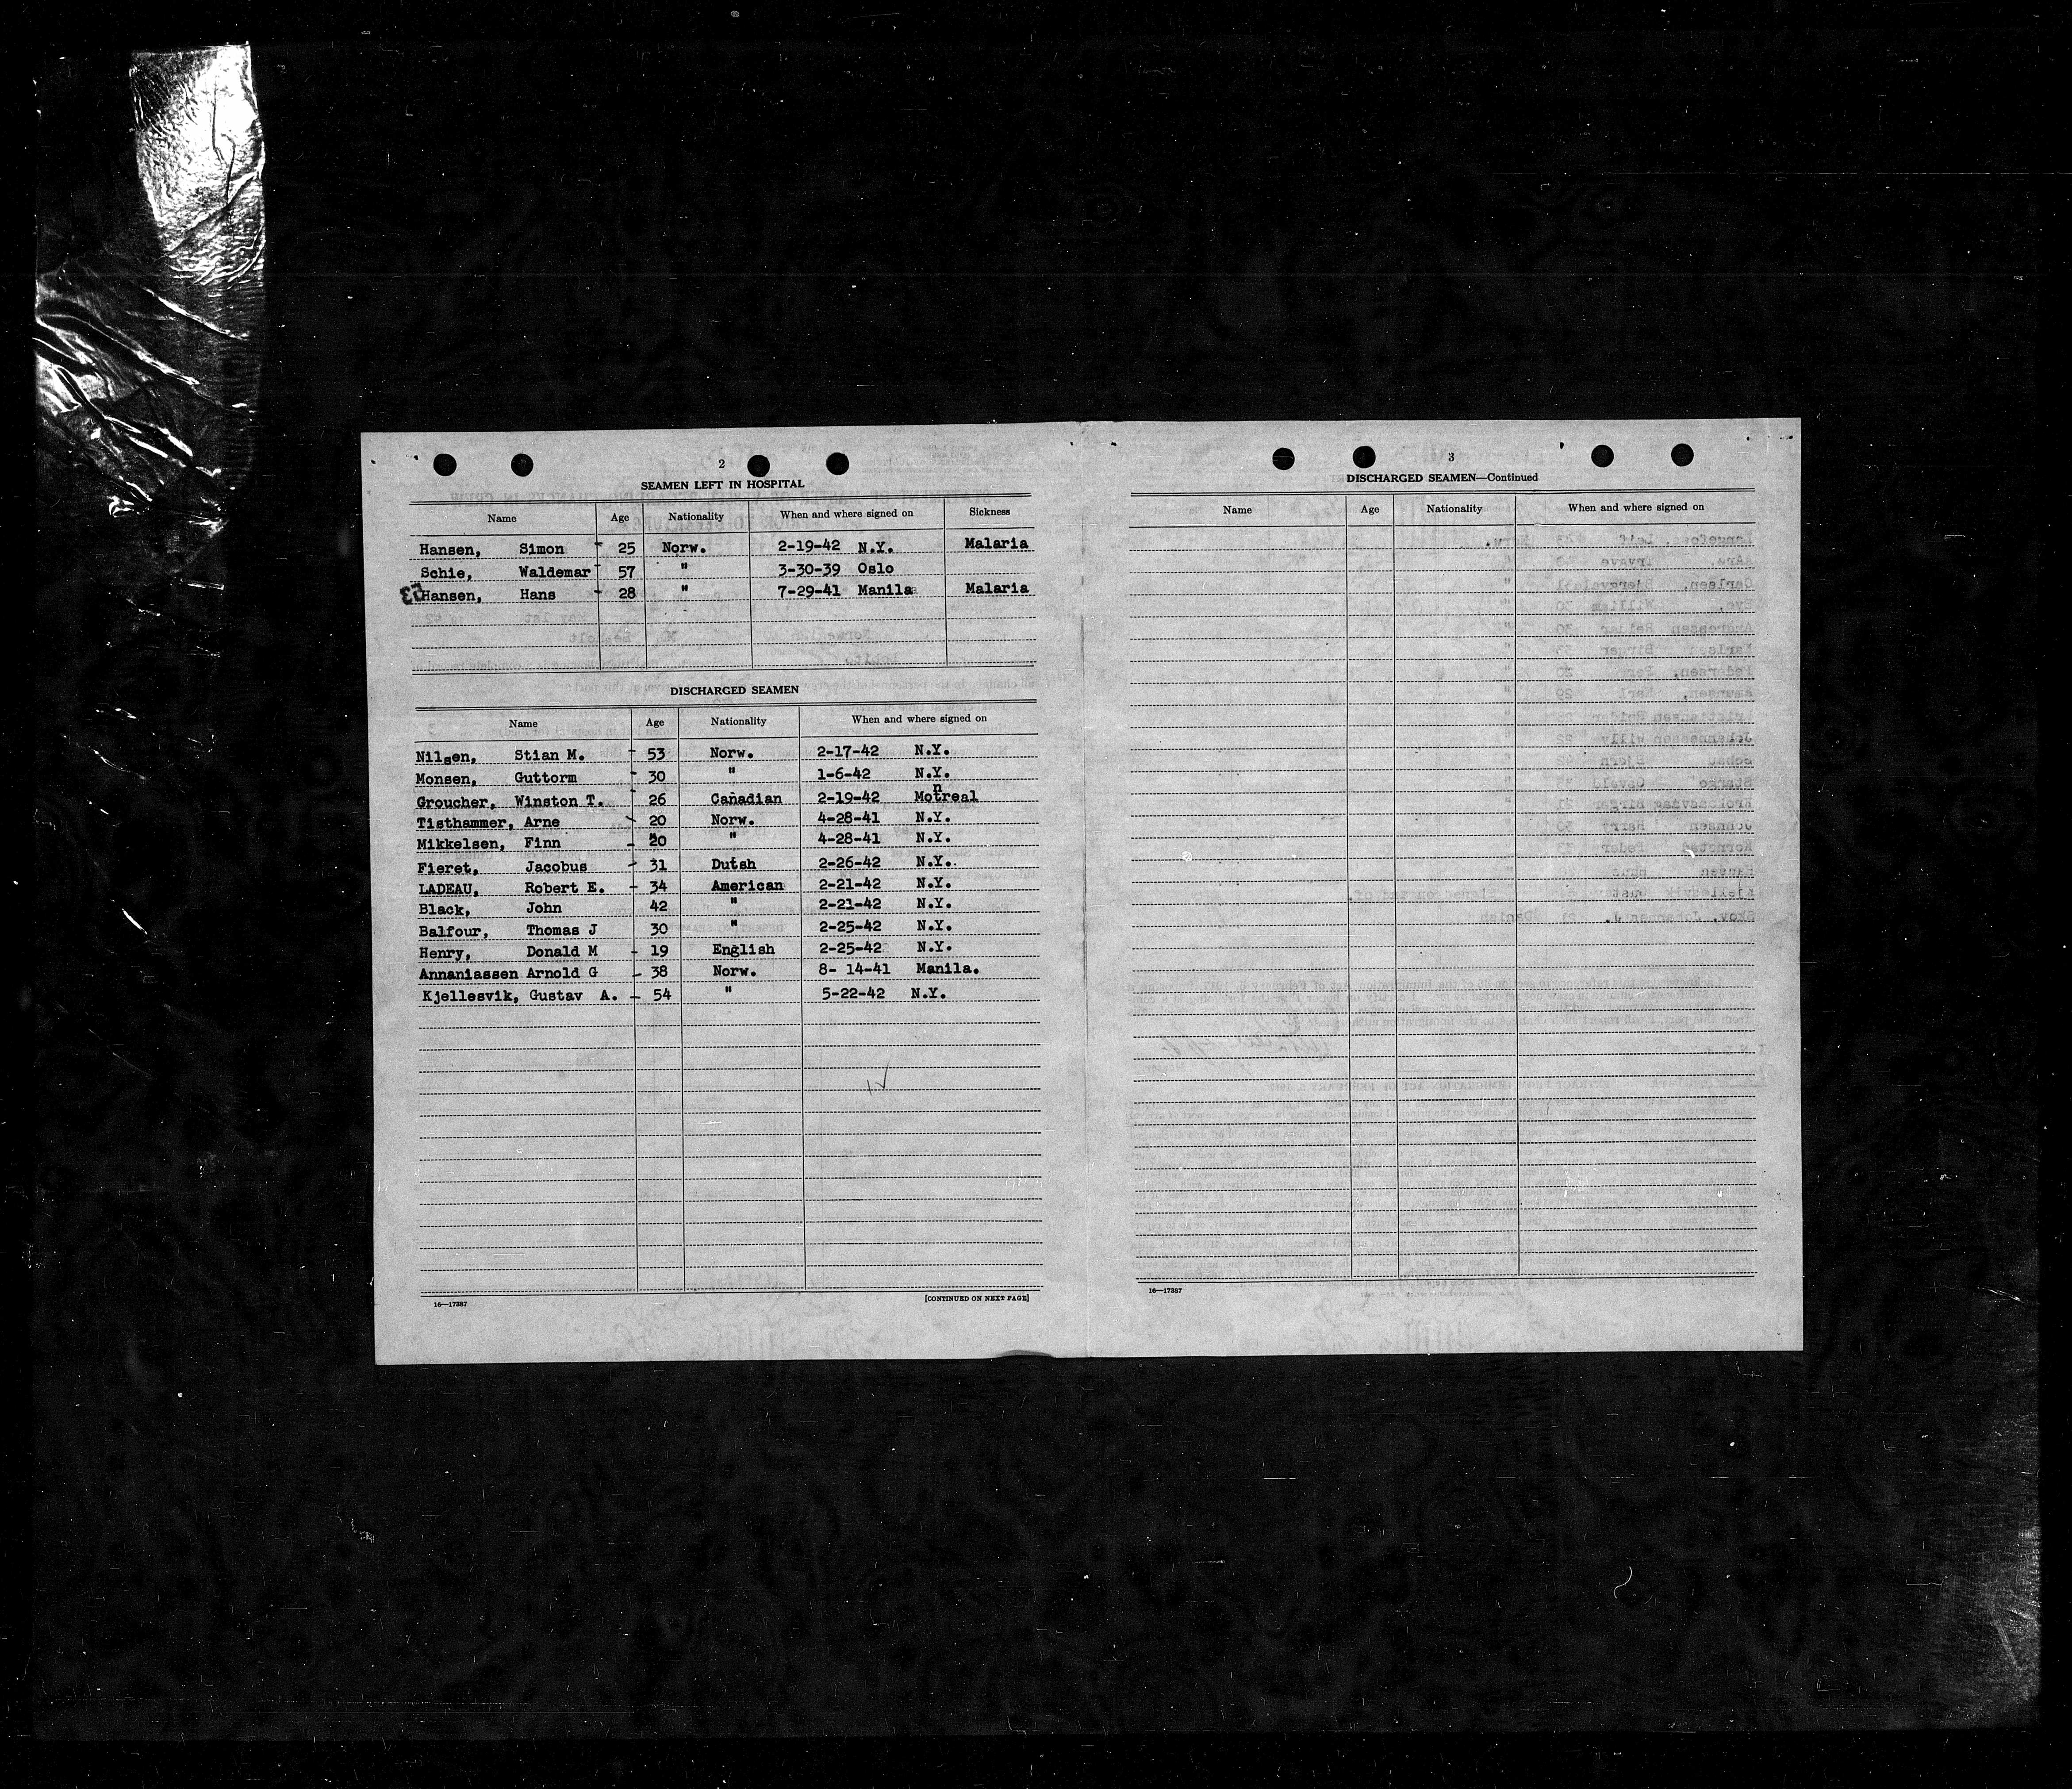 2
SEAMEN LEFT IN HOSPITAL
Name Age Nationality When and where signed on Sickness
Hansen, Simon 25 Norw. 2-19-42 N.Y. Malaria
Schie, Waldemar 57 " 3-30-39 Oslo
Hansen, Hans 28 " 7-29-41 Manila Malaria
DISCHARGED SEAMEN
Name Age Nationality When and where signed on
Nilsen, Stian M. 53 Norw. 2-17-42 N.Y.
Monsen, Guttorm 30 " 1-6-42 N.Y.
Groucher, Winston T. 26 Canadian 2-19-42 Montreal
Tisthammer, Arne 20 Norw. 4-28-41 N.Y.
Mikkelsen, Finn 20 " 4-28-41 N.Y.
Fieret, Jacobus 31 Dutsh 2-26-42 N.Y.
LADEAU, Robert E. 34 American 2-21-42 N.Y.
Black, John 42 " 2-21-42 N.Y.
Balfour, Thomas J 30 " 2-25-42 N.Y.
Henry, Donald M 19 English 2-25-42 N.Y.
Annaniassen Arnold G 38 Norw. 8- 14-41 Manila.
Kjellesvik, Gustav A. 54 " 5-22-42 N.Y.
16—17387 [CONTINUED ON NEXT PAGE]
3
DISCHARGED SEAMEN—Continued
Name Age Nationality When and where signed on
16—17387